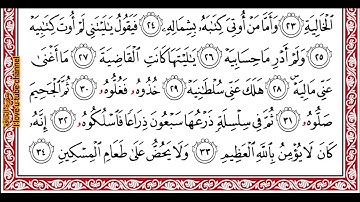 ٱلْخَالِيَةِ ٢٣ وَأَمَّا مَنْ أُوتِىَ كِتَٰبَهُۥ بِشِمَالِهِۦ ٢٤ فَيَقُولُ يَٰلَيْتَنِى لَمْ أُوتَ كِتَٰبِيَهْ
٢٥ وَلَمْ أَدْرِ مَا حِسَابِيَهْ ٢٦ يَٰلَيْتَهَا كَانَتِ ٱلْقَاضِيَةَ ٢٧ مَآ أَغْنَىٰ
عَنِّى مَالِيَهْ ٢٨ هَلَكَ عَنِّى سُلْطَٰنِيَهْ ٢٩ خُذُوهُ فَغُلُّوهُ ٣٠ ثُمَّ ٱلْجَحِيمَ
صَلُّوهُ ٣١ ثُمَّ فِى سِلْسِلَةٍ ذَرْعُهَا سَبْعُونَ ذِرَاعًا فَٱسْلُكُوهُ ٣٢ إِنَّهُۥ
كَانَ لَا يُؤْمِنُ بِٱللَّهِ ٱلْعَظِيمِ ٣٣ وَلَا يَحُضُّ عَلَىٰ طَعَامِ ٱلْمِسْكِينِ ٣٤